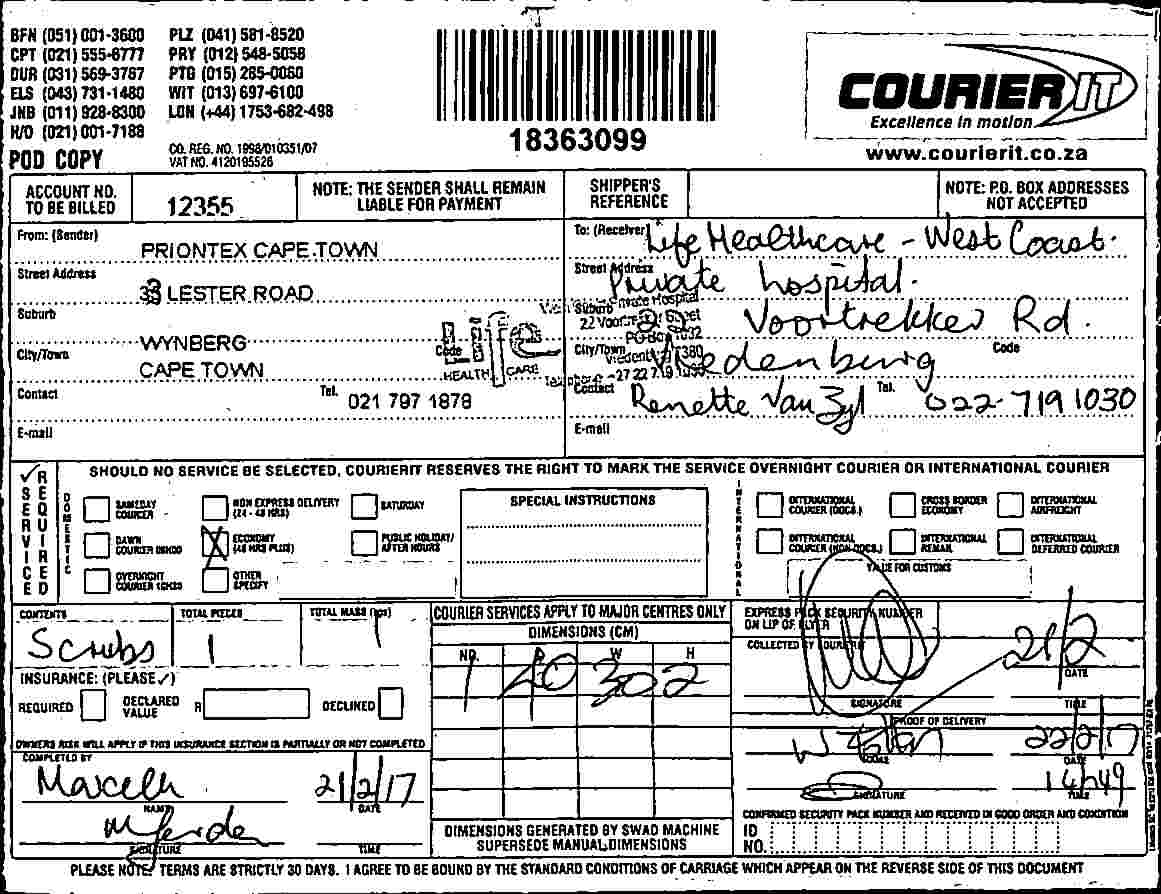 BFN (051) 001-3600 PLZ (041) 581-8520
CPT (021) 555-6777 PRY (012) 548-5058
DUR (031) 569-3767 PTG (015) 285-0060
ELS (043) 731-1480 WIT (013) 697-6100
JNB (011) 928-8300 LON (+44) 1753-682-498
H/O (021) 001-7188
POD COPY
CO. REG. NO. 1998/010351/07
VAT NO. 4120195526
18363099
COURIER IT
Excellence in motion
www.courierit.co.za
ACCOUNT NO. TO BE BILLED
12355
NOTE: THE SENDER SHALL REMAIN LIABLE FOR PAYMENT
SHIPPER'S REFERENCE
NOTE: P.O. BOX ADDRESSES NOT ACCEPTED
From: (Sender)
PRIONTEX CAPE TOWN
Street Address
33 LESTER ROAD
Suburb
WYNBERG
City/Town
CAPE TOWN
Code
Contact
Tel. 021 797 1878
E-mail
Life
HEALTH CARE
To: (Receiver) Life Healthcare - West Coast
Street Address Private hospital.
Suburb 22 Voortrekker Rd.
City/Town Vredenburg
Code
Contact Renette Van Zyl Tel. 022-719 1030
E-mail
SERVICE REQUIRED
SHOULD NO SERVICE BE SELECTED, COURIERIT RESERVES THE RIGHT TO MARK THE SERVICE OVERNIGHT COURIER OR INTERNATIONAL COURIER
DOMESTIC
SAMEDAY COURIER
NON EXPRESS DELIVERY (24 - 48 HRS)
SATURDAY
DAWN COURIER 09H00
ECONOMY (48 HRS PLUS)
PUBLIC HOLIDAY/ AFTER HOURS
OVERNIGHT COURIER 10H30
OTHER SPECIFY
SPECIAL INSTRUCTIONS
INTERNATIONAL
INTERNATIONAL COURIER (DOCS.)
CROSS BORDER ECONOMY
INTERNATIONAL AIRFREIGHT
INTERNATIONAL COURIER (NON-DOCS.)
INTERNATIONAL REMAIL
INTERNATIONAL DEFERRED COURIER
VALUE FOR CUSTOMS
CONTENTS
Scrubs
TOTAL PIECES
1
TOTAL MASS (kgs)
1
INSURANCE: (PLEASE ✓)
REQUIRED
DECLARED VALUE R
DECLINED
OWNERS RISK WILL APPLY IF THIS INSURANCE SECTION IS PARTIALLY OR NOT COMPLETED
COMPLETED BY
Marcelle 21/2/17
NAME DATE
SIGNATURE TIME
COURIER SERVICES APPLY TO MAJOR CENTRES ONLY
DIMENSIONS (CM)
NO. W H
1 40 30 2
DIMENSIONS GENERATED BY SWAD MACHINE SUPERSEDE MANUAL DIMENSIONS
EXPRESS PACK SECURITY NUMBER ON LIP OF FLYER
COLLECTED BY COURIERIT
21/2
DATE
SIGNATURE TIME
PROOF OF DELIVERY
22/2/17
NAME DATE
14h49
SIGNATURE TIME
CONFIRMED SECURITY PACK NUMBER AND RECEIVED IN GOOD ORDER AND CONDITION
ID NO.
PLEASE NOTE: TERMS ARE STRICTLY 30 DAYS. I AGREE TO BE BOUND BY THE STANDARD CONDITIONS OF CARRIAGE WHICH APPEAR ON THE REVERSE SIDE OF THIS DOCUMENT